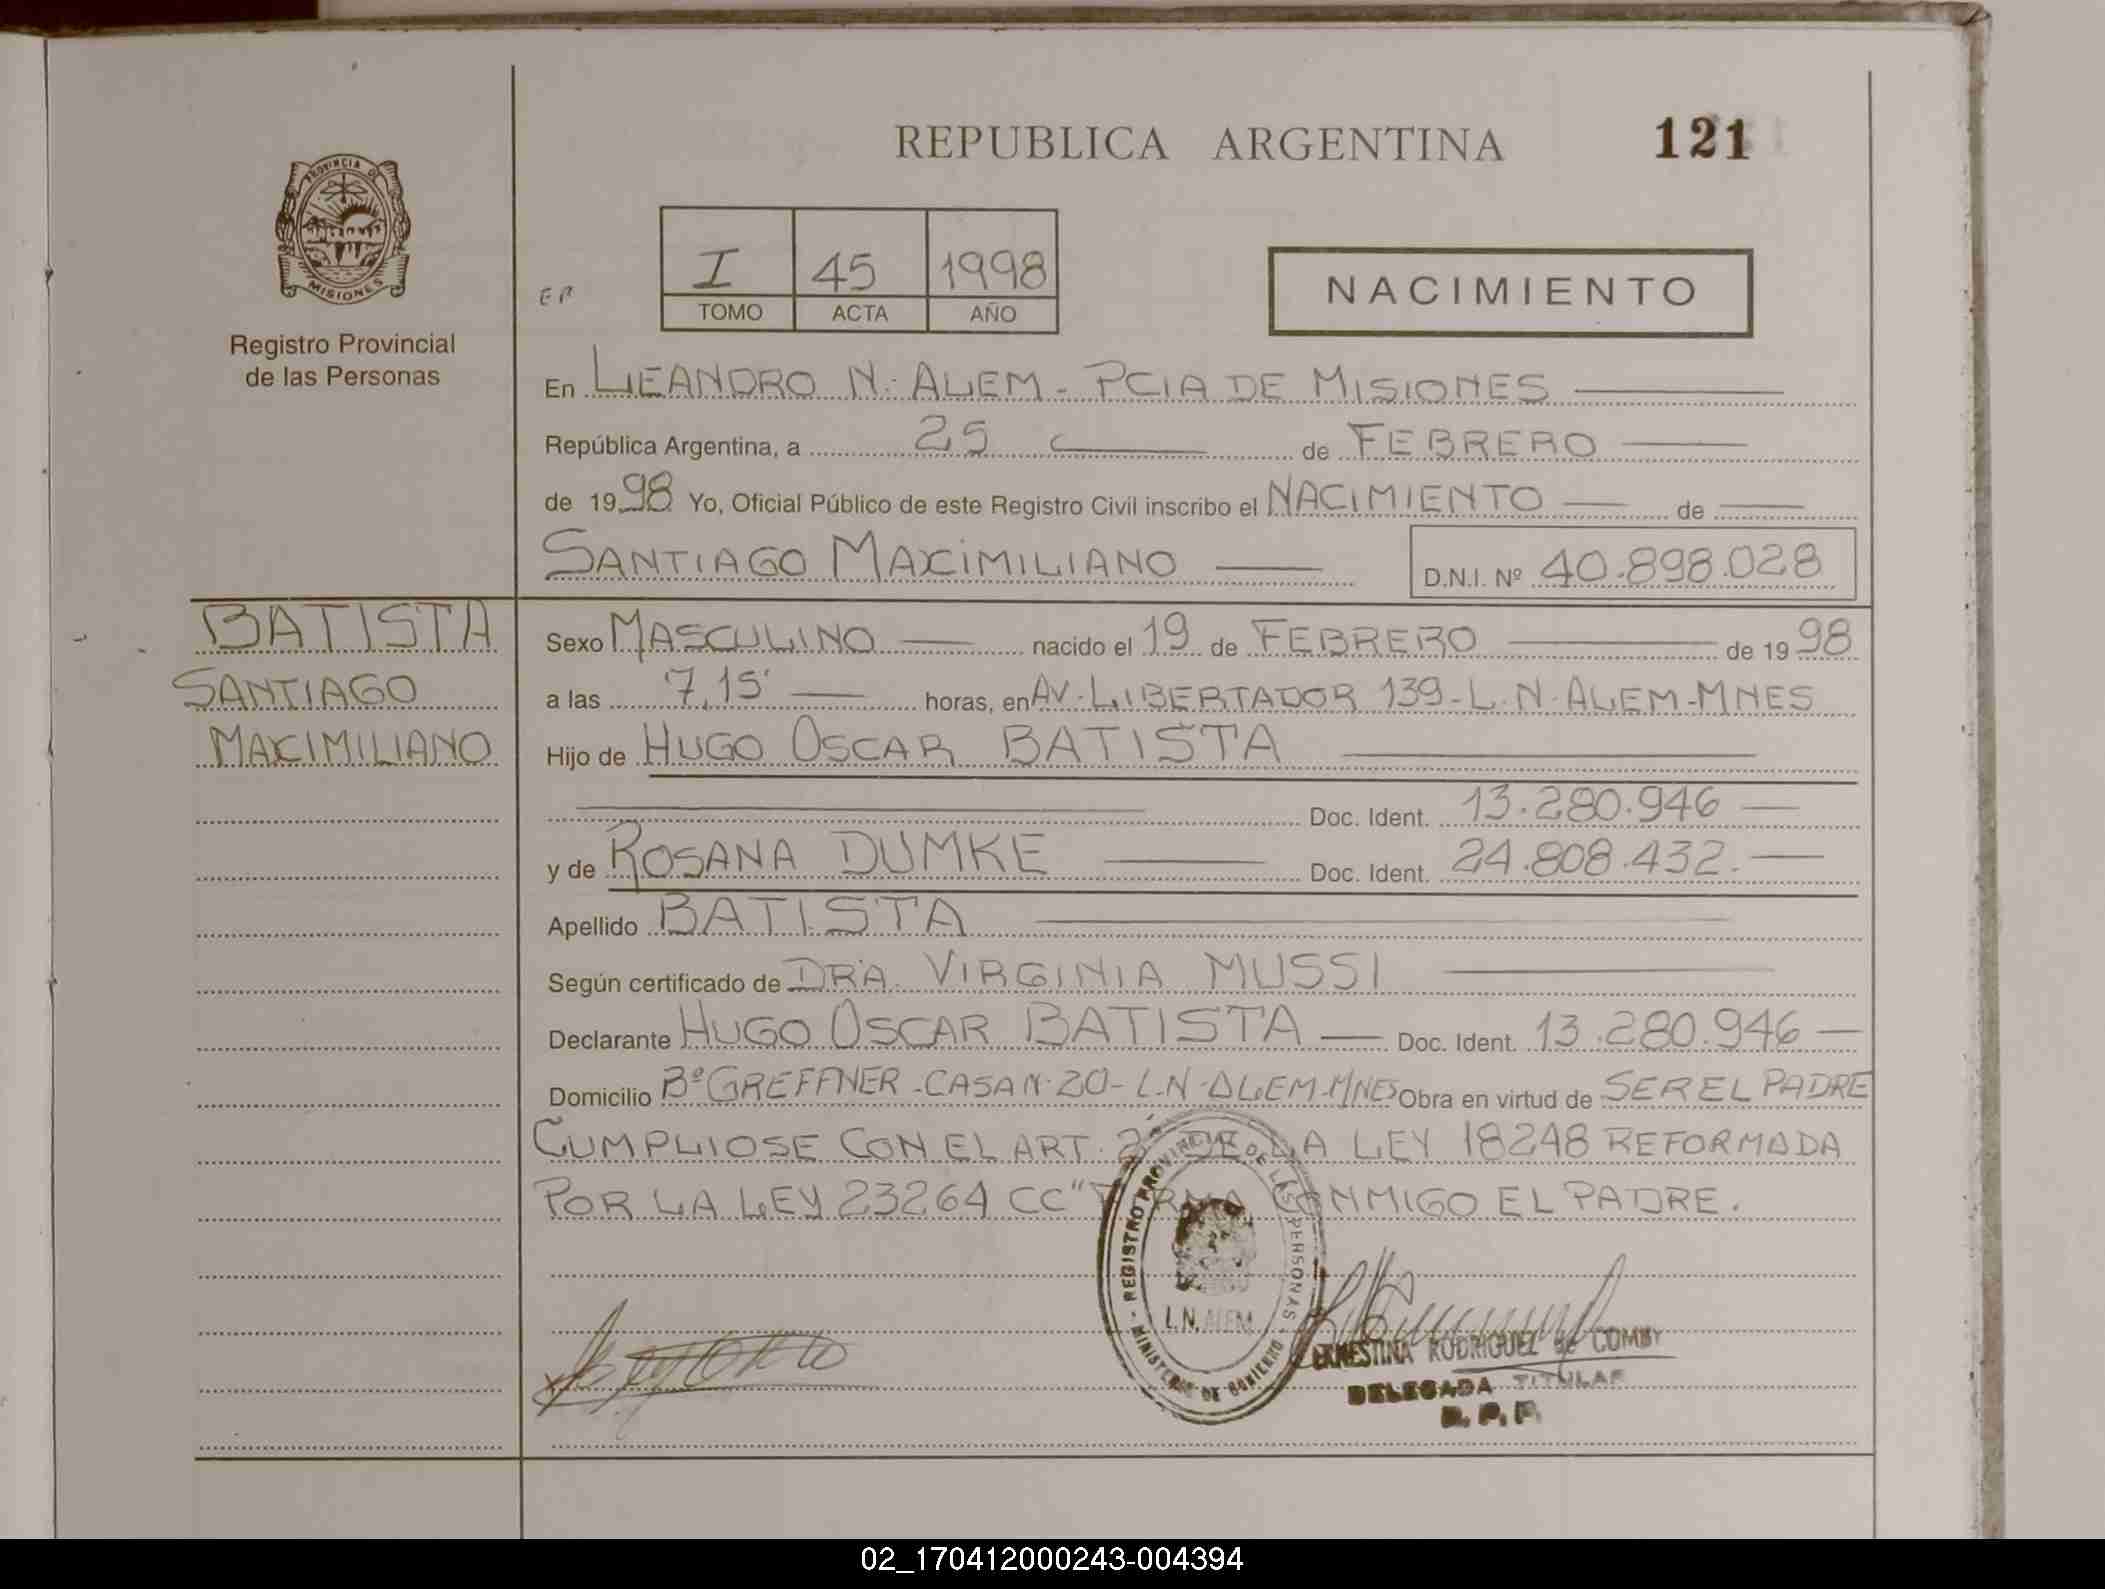 REPUBLICA ARGENTINA
121
PROVINCIA DE
MISIONES
Registro Provincial
de las Personas
I 45 1998
TOMO ACTA AÑO
NACIMIENTO
En LEANDRO N. ALEM - PCIA DE MISIONES
República Argentina, a 25 de FEBRERO
de 1998 Yo, Oficial Público de este Registro Civil inscribo el NACIMIENTO de
SANTIAGO MAXIMILIANO D.N.I. Nº 40.898.028
BATISTA
SANTIAGO
MAXIMILIANO
Sexo MASCULINO nacido el 19 de FEBRERO de 1998
a las 7,15' horas, en AV. LIBERTADOR 139 - L.N. ALEM - MNES
Hijo de HUGO OSCAR BATISTA
Doc. Ident. 13.280.946
y de ROSANA DUMKE Doc. Ident. 24.808.432.-
Apellido BATISTA
Según certificado de DRA. VIRGINIA MUSSI
Declarante HUGO OSCAR BATISTA Doc. Ident. 13.280.946
Domicilio Bº GREFFNER - CASA N. 20 - L.N. ALEM - MNES Obra en virtud de SER EL PADRE
CUMPLIOSE CON EL ART. 2º DE LA LEY 18248 REFORMADA
POR LA LEY 23264 CC" FIRMA CONMIGO EL PADRE.
- REGISTRO PROVINCIAL DE LAS PERSONAS -
MINISTERIO DE GOBIERNO
L.N. ALEM
ERNESTINA RODRIGUEZ de COMBY
DELEGADA TITULAR
02_170412000243-004394